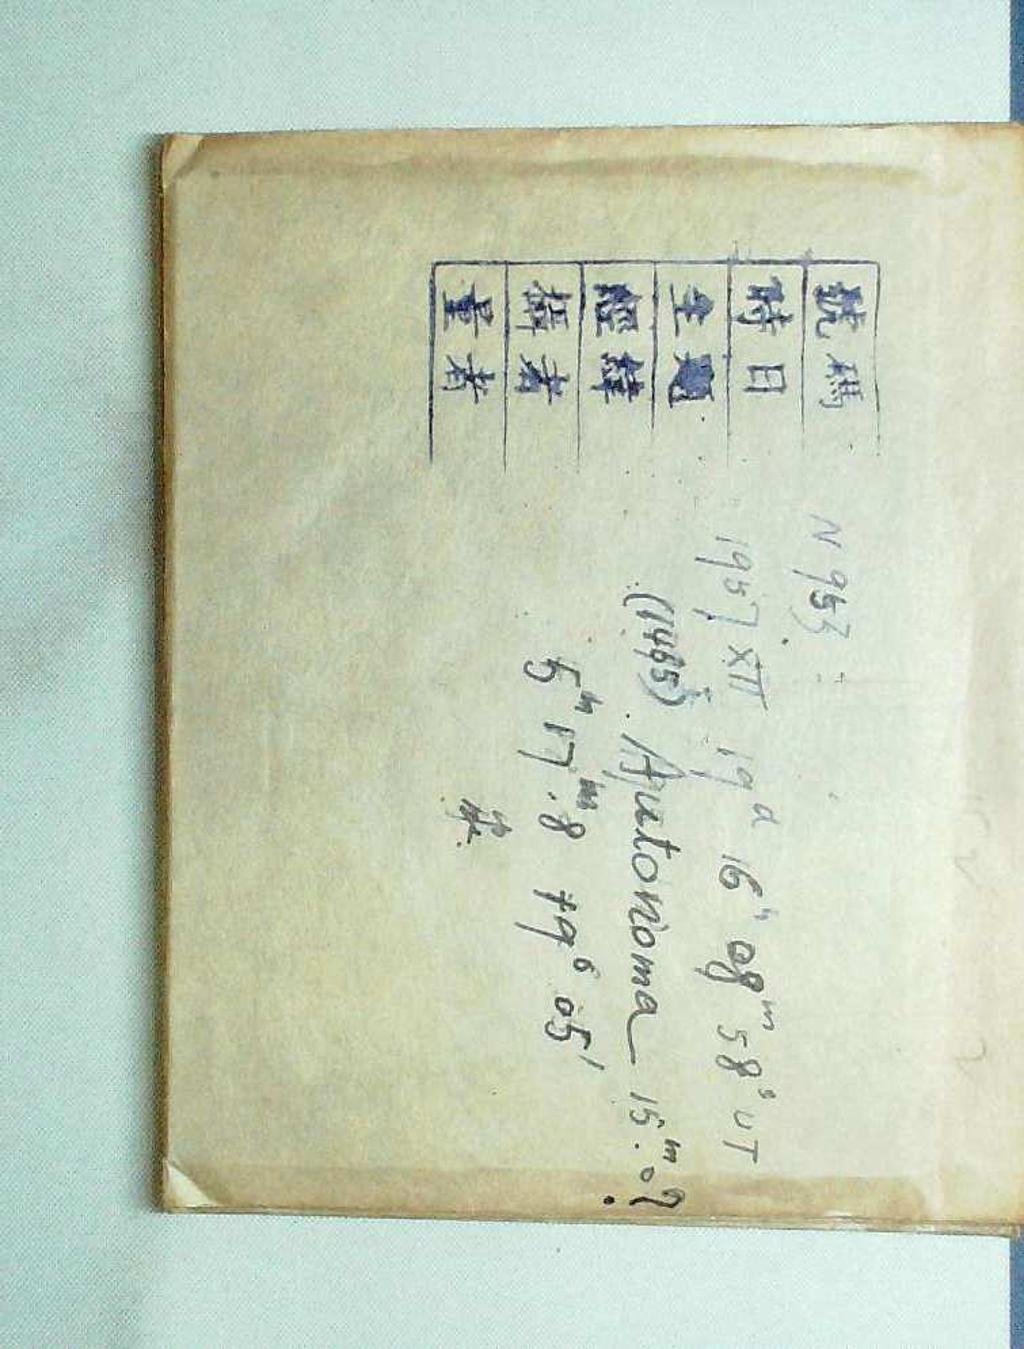 號碼 N 953
時日 1957 XII 19d 16h 08m 58s UT
全題 (1465) Autonoma 15.m0?
經緯
攝者 5h 17m.8 +9° 05'
量者